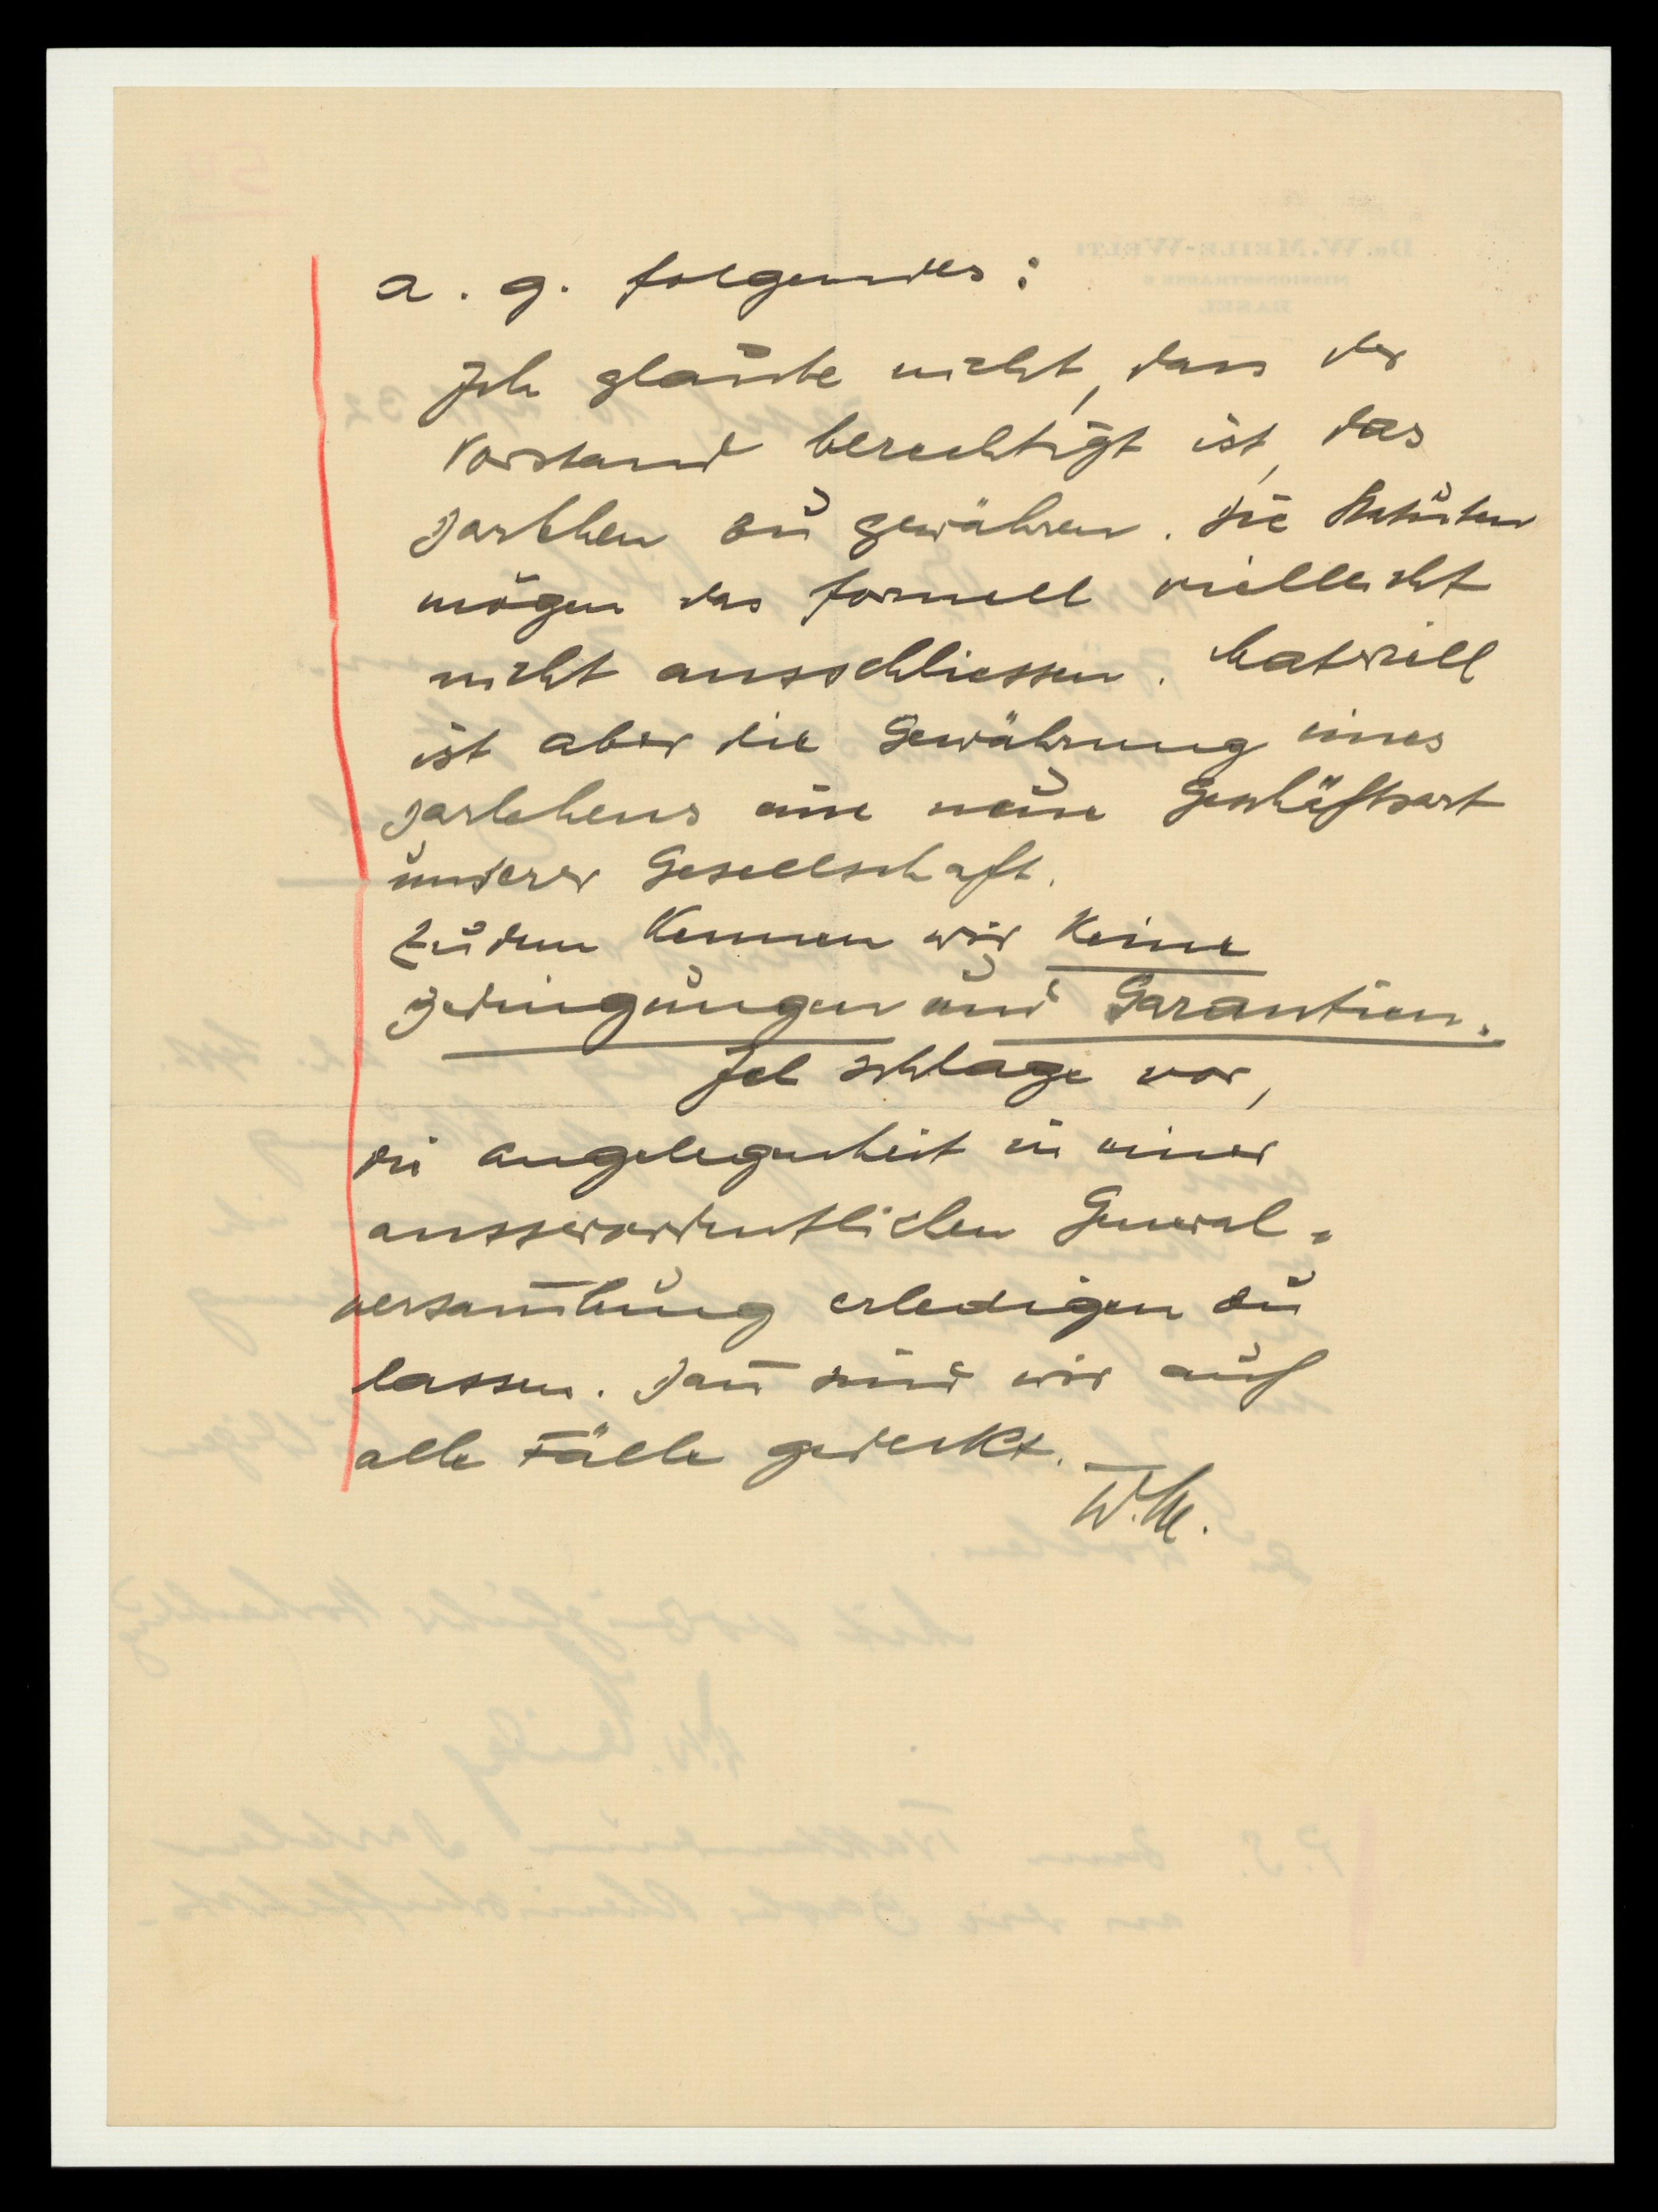 a. g. folgendes:
Ich glaube nicht, dass der
Vorstand berechtigt ist, das
Darlehen zu gewähren. Die Statuten
mögen das formell vielleicht
nicht ausschliessen. Materiell
ist aber die Gewährung eines
Darlehens eine neue Geschäftsart
unserer Gesellschaft.
Zudem kennen wir keine
Bedingungen und Garantien.
Ich schlage vor,
die Angelegenheit in einer
ausserordentlichen General-
versam̄lung erledigen zu
lassen. Dan̄ sind wir auf
alle Fälle gedeckt.
W.M.